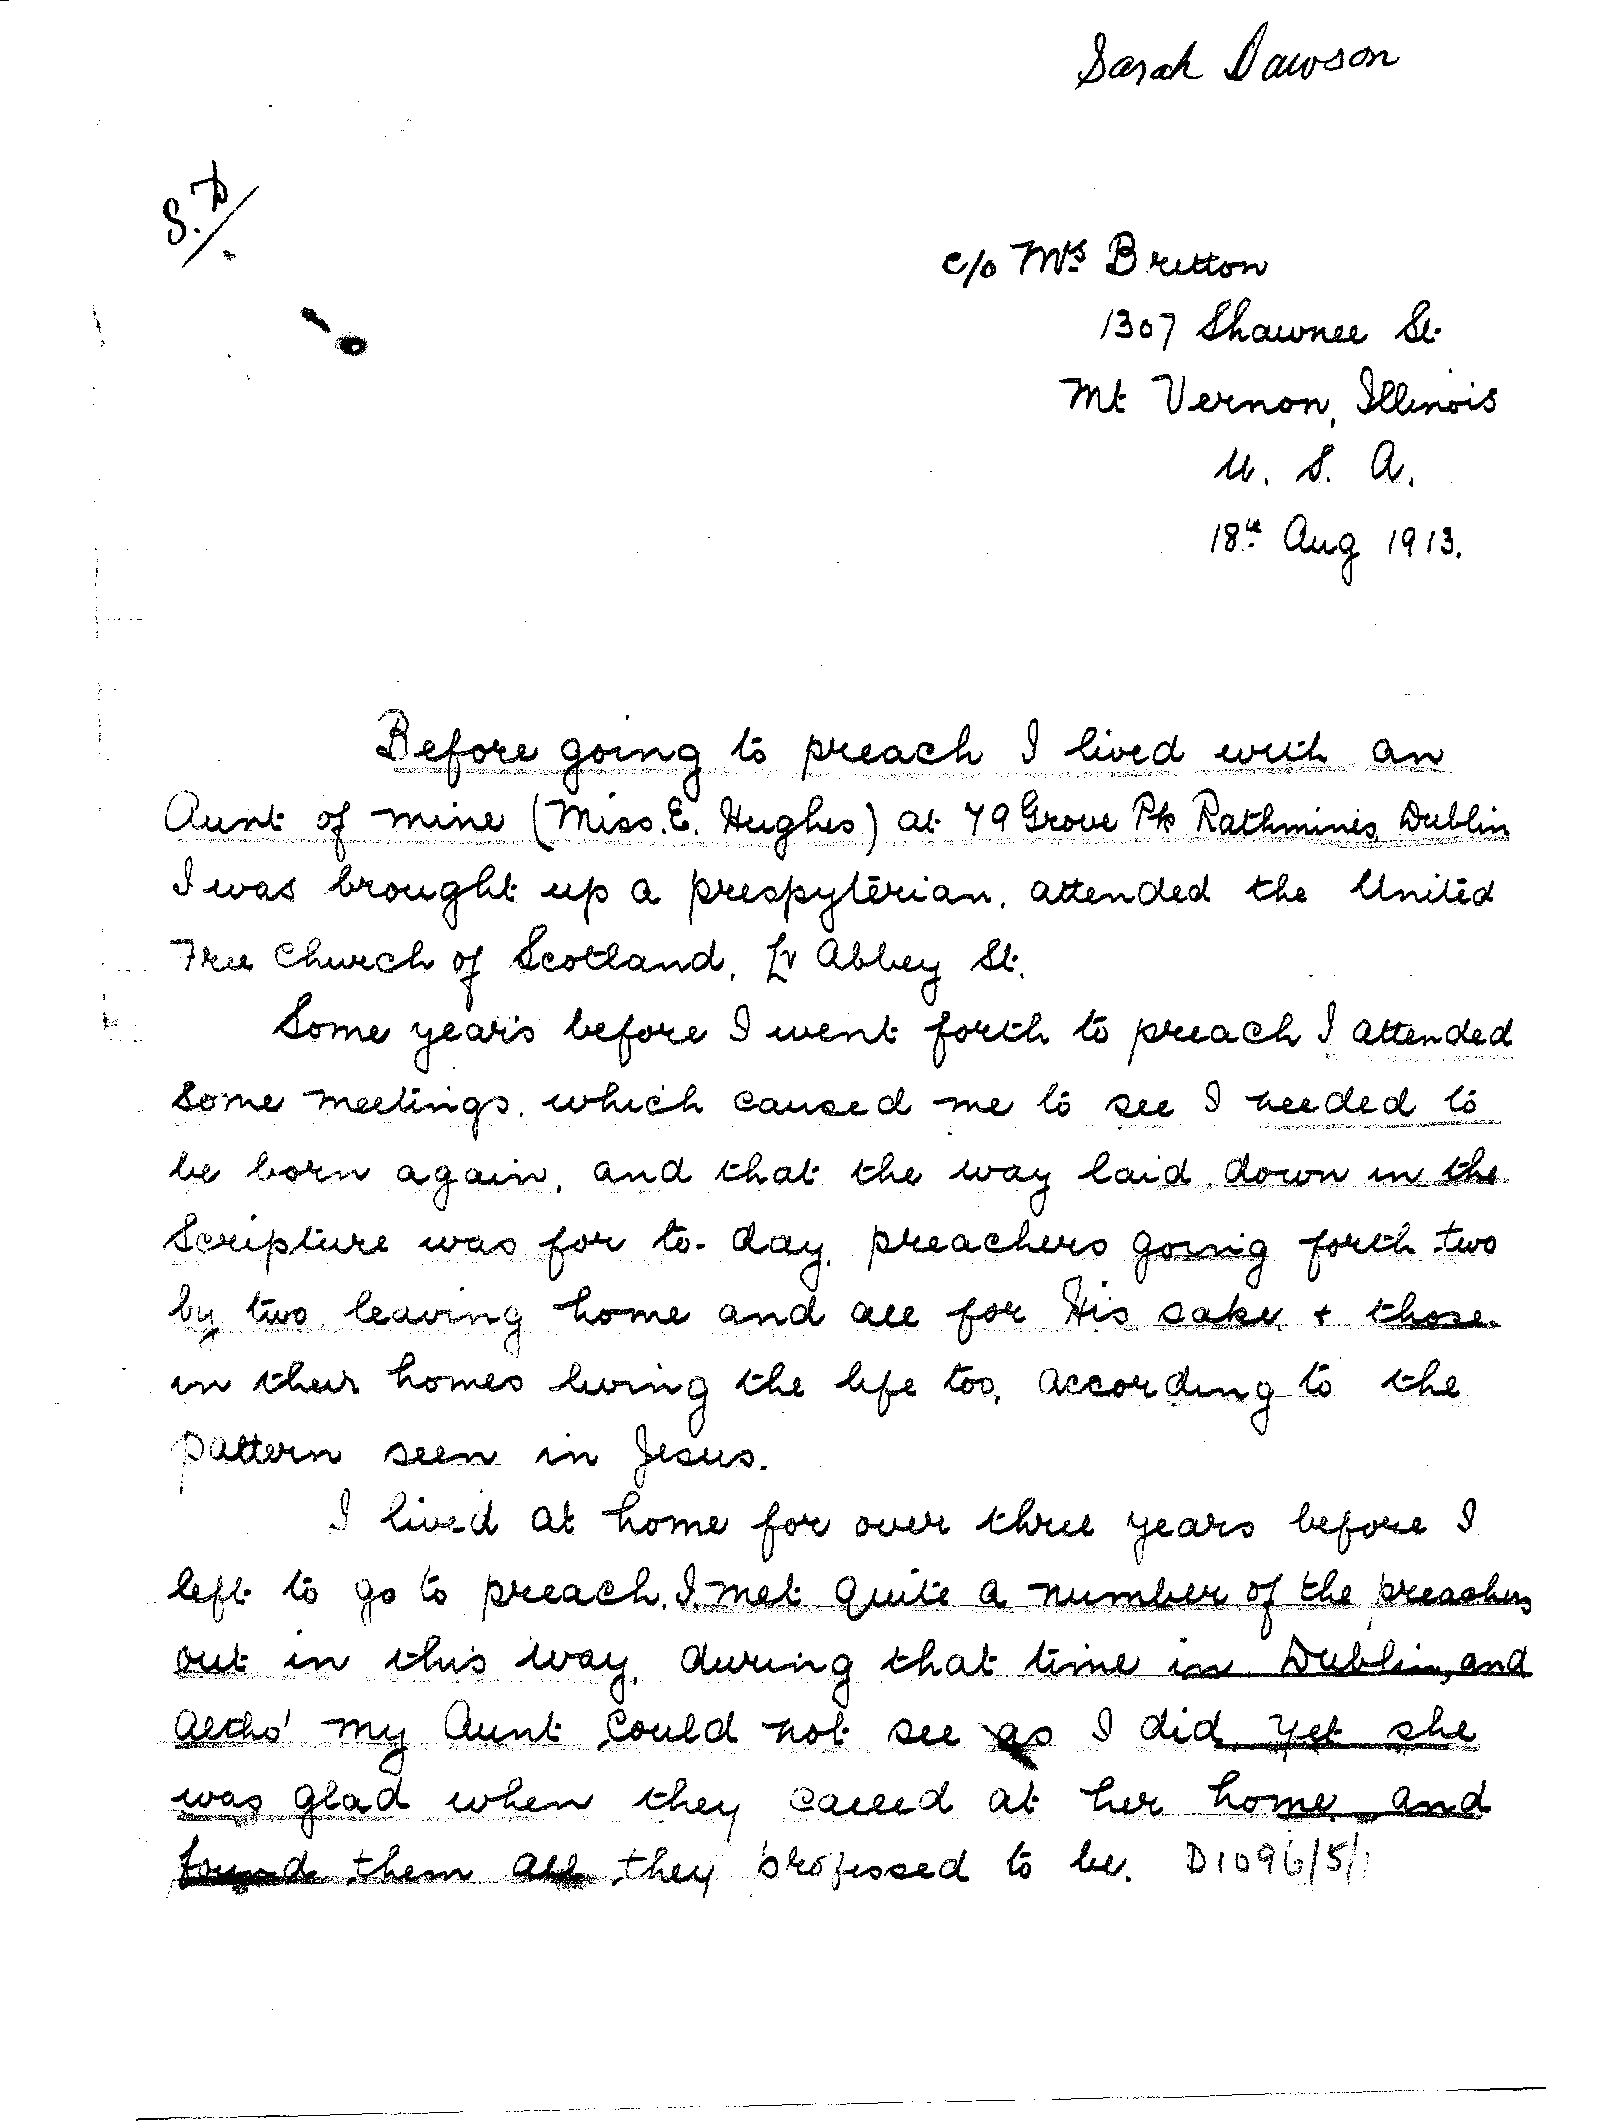 Sarah Dawson
S.D/.
c/o Mrs Bretton
1307 Shawnee St.
Mt Vernon, Illinois
U. S. A.
18th Aug 1913.
Before going to preach I lived with an
Aunt of mine (Miss. E. Hughes) at 79 Grove Pk Rathmines, Dublin
I was brought up a prespyterian, attended the United
Free Church of Scotland, Lr Abbey St.
Some years before I went forth to preach I attended
some meetings, which caused me to see I needed to
be born again, and that the way laid down in the
Scripture was for to-day, preachers going forth two
by two leaving home and all for His sake, + those
in their homes living the life too, according to the
pattern seen in Jesus.
I lived at home for over three years before I
left to go to preach. I met quite a number of the preachers
out in this way, during that time in Dublin, and
altho' my Aunt could not see as I did, yet she
was glad when they called at her home, and
found them all they professed to be. D1096/5/1